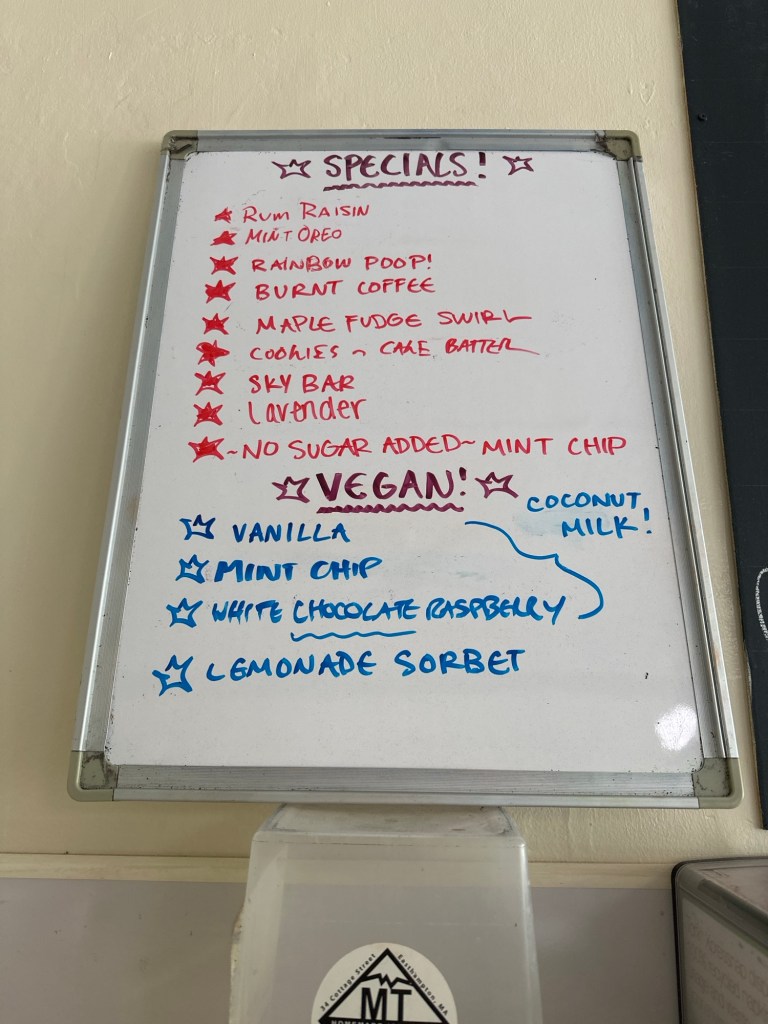 SPECIALS!
RUM RAISIN
MINT OREO
RAINBOW POOP!
BURNT COFFEE
MAPLE FUDGE SWIRL
COOKIES n CAKE BATTER
SKY BAR
Lavender
~NO SUGAR ADDED~ MINT CHIP
VEGAN!
COCONUT
MILK!
VANILLA
MINT CHIP
WHITE CHOCOLATE RASPBERRY
LEMONADE SORBET
34 Cottage Street
Easthampton, MA
MT